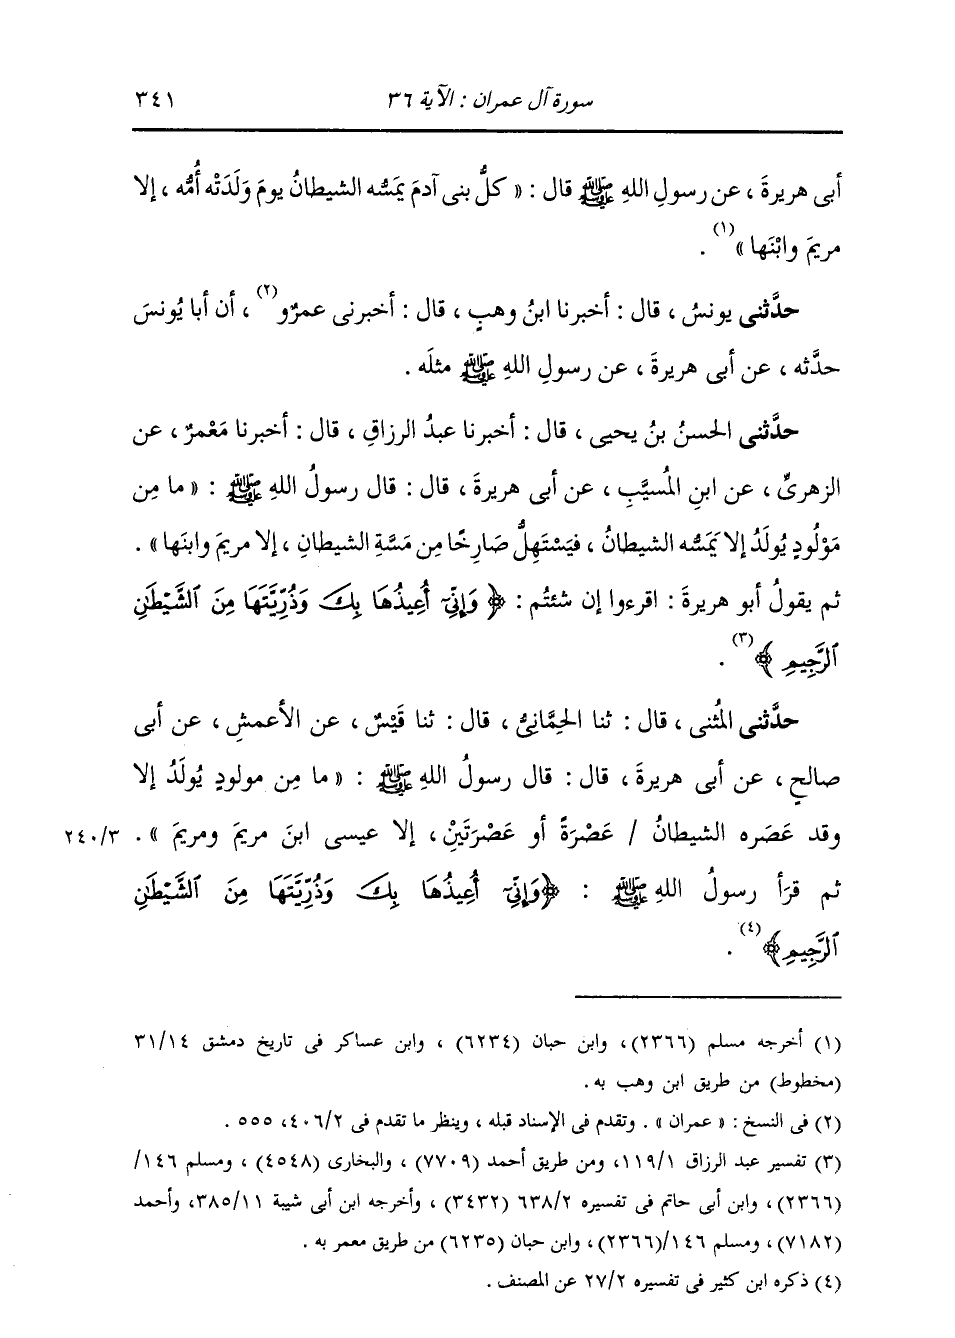 سورة آل عمران : الآية ٣٦ ٣٤١
أبى هريرةَ ، عن رسولِ اللهِ ﷺ قال : « كلُّ بنى آدمَ يَمَسُّه الشيطانُ يومَ وَلَدَتْه أُمُّه ، إلا
مريمَ وابْنَها »(١) .
حدَّثنى يونسُ ، قال : أخبرنا ابنُ وهبٍ ، قال : أخبرنى عمرٌو(٢) ، أن أبا يُونسَ
حدَّثه ، عن أبى هريرةَ ، عن رسولِ اللهِ ﷺ مثلَه .
حدَّثنى الحسنُ بنُ يحيى ، قال : أخبرنا عبدُ الرزاقِ ، قال : أخبرنا مَعْمرٌ ، عن
الزهرىِّ ، عن ابنِ المُسيَّبِ ، عن أبى هريرةَ ، قال : قال رسولُ اللهِ ﷺ : « ما مِن
مَوْلُودٍ يُولَدُ إلا يَمَسُّه الشيطانُ ، فيَسْتَهِلُّ صَارِخًا مِن مَسَّةِ الشيطانِ ، إلا مريمَ وابنَها » .
ثم يقولُ أبو هريرةَ : اقرءوا إن شئتُم : ﴿ وَإِنِّىٓ أُعِيذُهَا بِكَ وَذُرِّيَّتَهَا مِنَ ٱلشَّيْطَٰنِ
ٱلرَّجِيمِ ﴾(٣) .
حدَّثنى المُثنى ، قال : ثنا الحِمَّانِىُّ ، قال : ثنا قَيْسٌ ، عن الأعمشِ ، عن أبى
صالحٍ ، عن أبى هريرةَ ، قال : قال رسولُ اللهِ ﷺ : « ما مِن مولودٍ يُولَدُ إلا
وقد عَصَره الشيطانُ / عَصْرَةً أو عَصْرَتَيْنِ ، إلا عيسى ابنَ مريمَ ومريمَ » . ٢٤٠/٣
ثم قرَأ رسولُ اللهِ ﷺ : ﴿وَإِنِّىٓ أُعِيذُهَا بِكَ وَذُرِّيَّتَهَا مِنَ ٱلشَّيْطَٰنِ
ٱلرَّجِيمِ﴾(٤) .
(١) أخرجه مسلم (٢٣٦٦)، وابن حبان (٦٢٣٤) ، وابن عساكر فى تاريخ دمشق ٣١/١٤
(مخطوط) من طريق ابن وهب به .
(٢) فى النسخ : « عمران » . وتقدم فى الإسناد قبله ، وينظر ما تقدم فى ٤٠٦/٢، ٥٥٥ .
(٣) تفسير عبد الرزاق ١١٩/١، ومن طريق أحمد (٧٧٠٩) ، والبخارى (٤٥٤٨) ، ومسلم ١٤٦/
(٢٣٦٦)، وابن أبى حاتم فى تفسيره ٦٣٨/٢ (٣٤٣٢) ، وأخرجه ابن أبى شيبة ٣٨٥/١١، وأحمد
(٧١٨٢)، ومسلم ١٤٦/(٢٣٦٦)، وابن حبان (٦٢٣٥) من طريق معمر به .
(٤) ذكره ابن كثير فى تفسيره ٢٧/٢ عن المصنف .